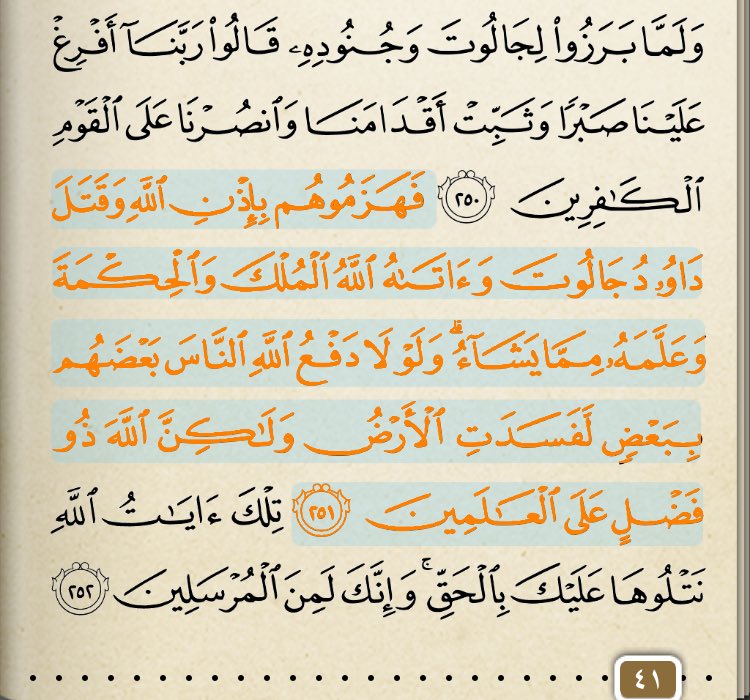 وَلَمَّا بَرَزُوا۟ لِجَالُوتَ وَجُنُودِهِۦ قَالُوا۟ رَبَّنَآ أَفْرِغْ
عَلَيْنَا صَبْرًا وَثَبِّتْ أَقْدَامَنَا وَٱنصُرْنَا عَلَى ٱلْقَوْمِ
ٱلْكَـٰفِرِينَ ٢٥٠ فَهَزَمُوهُم بِإِذْنِ ٱللَّهِ وَقَتَلَ
دَاوُۥدُ جَالُوتَ وَءَاتَىٰهُ ٱللَّهُ ٱلْمُلْكَ وَٱلْحِكْمَةَ
وَعَلَّمَهُۥ مِمَّا يَشَآءُ ۗ وَلَوْلَا دَفْعُ ٱللَّهِ ٱلنَّاسَ بَعْضَهُم
بِبَعْضٍ لَّفَسَدَتِ ٱلْأَرْضُ وَلَـٰكِنَّ ٱللَّهَ ذُو
فَضْلٍ عَلَى ٱلْعَـٰلَمِينَ ٢٥١ تِلْكَ ءَايَـٰتُ ٱللَّهِ
نَتْلُوهَا عَلَيْكَ بِٱلْحَقِّ ۚ وَإِنَّكَ لَمِنَ ٱلْمُرْسَلِينَ ٢٥٢
٤١